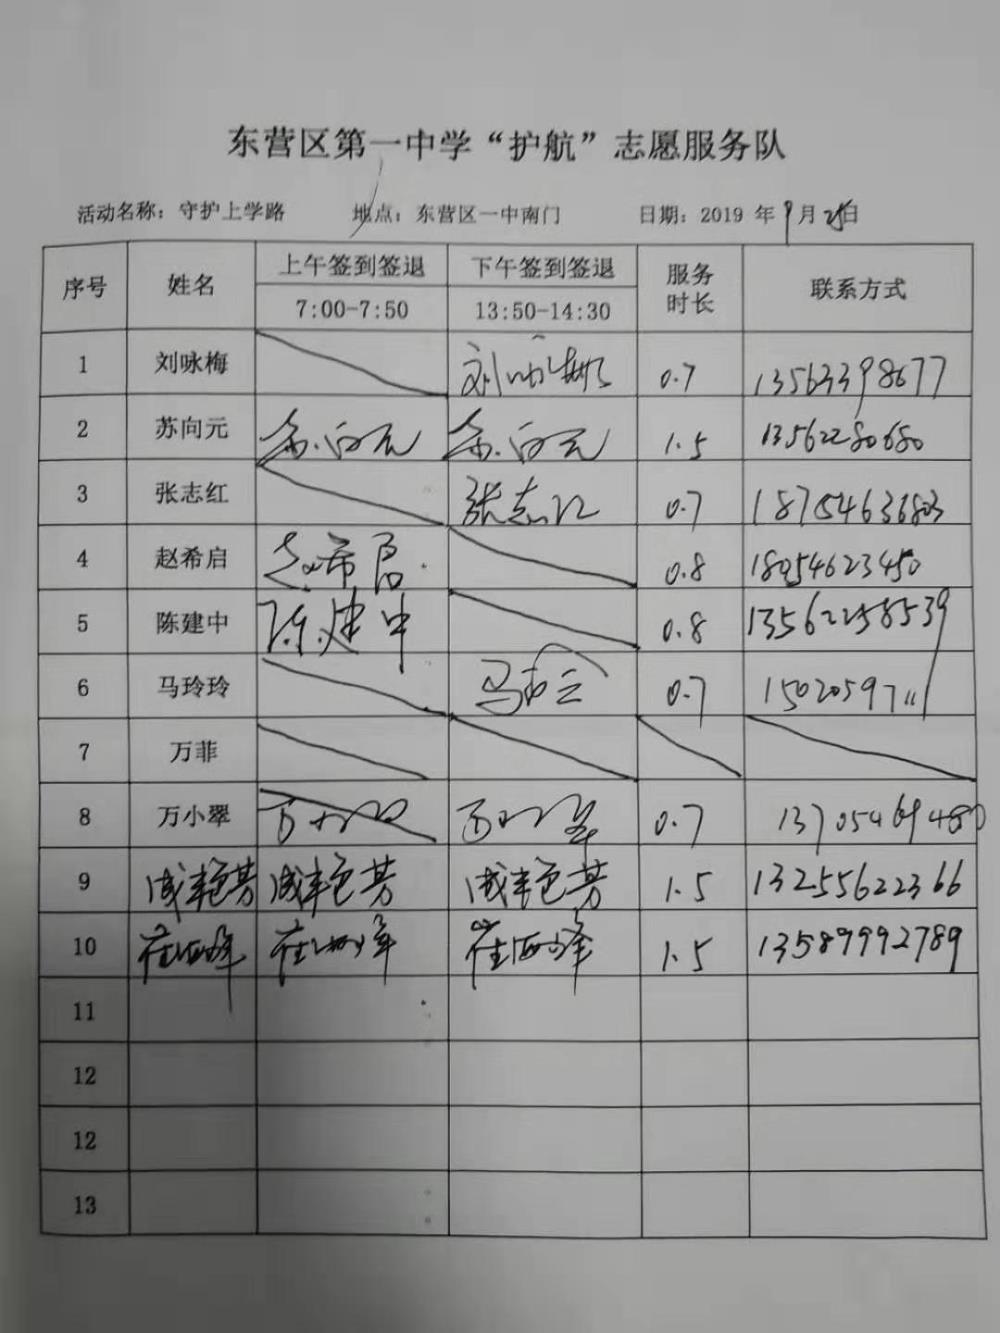 东营区第一中学“护航”志愿服务队
活动名称：守护上学路 地点：东营区一中南门 日期：2019 年 9 月 25日
序号 姓名 上午签到签退 下午签到签退 服务时长 联系方式
7:00-7:50 13:50-14:30
1 刘咏梅 刘咏梅 0.7 13563398677
2 苏向元 苏向元 苏向元 1.5 13562280680
3 张志红 张志红 0.7 18754636803
4 赵希启 赵希启 0.8 18054623450
5 陈建中 陈建中 0.8 13562258539
6 马玲玲 0.7 15020597111
7 万菲
8 万小翠 万小翠 万小翠 0.7 13705469480
9 成艳芳 成艳芳 成艳芳 1.5 13255622366
10 1.5 13589992789
11
12
12
13